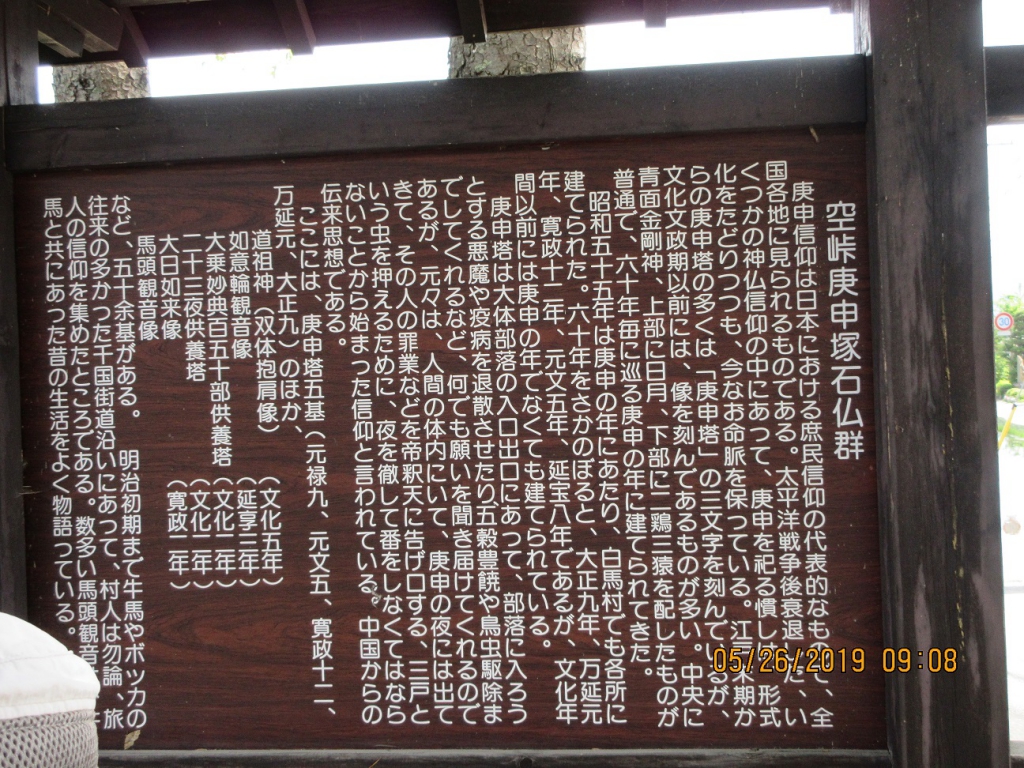 空峠庚申塚石仏群
庚申信仰は日本における庶民信仰の代表的なもで、全
国各地に見られるものである。太平洋戦争後衰退した、い
くつかの神仏信仰の中にあって、庚申を祀る慣し、形式
化をたどりつつも、今なお命脈を保っている。江戸末期か
らの庚申塔の多くは「庚申塔」の三文字を刻んでいるが、
文化文政期以前には、像を刻んであるものが多い。中央に
青面金剛神、上部に日月、下部に二鶏三猿を配したものが
普通で、六十年毎に巡る庚申の年に建てられてきた。
昭和五十五年は庚申の年にあたり、白馬村でも各所に
建てられた。六十年をさかのぼると、大正九年、万延元
年、寛政十二年、元文五年、延宝八年であるが、文化年
間以前には庚申の年でなくても建てられている。
庚申塔は大体部落の入口出口にあって、部落に入ろう
とする悪魔や疫病を退散させたり五穀豊饒や鳥虫駆除ま
でしてくれるなど、何でも願いを聞き届けてくれるので
あるが、元々は、人間の体内にいて、庚申の夜には出て
きて、その人の罪業などを帝釈天に告げ口する、三尸と
いう虫を押えるために、夜を徹して番をしなくてはなら
ないことから始まった信仰と言われている。中国からの
伝来思想である。
ここには、庚申塔五基（元禄九、元文五、寛政十二、
万延元、大正九）のほか、
道祖神（双体抱肩像）（文化五年）
如意輪観音像（延享三年）
大乗妙典百五十部供養塔（文化二年）
二十三夜供養塔（文化二年）
大日如来像（寛政二年）
馬頭観音像
など、五十余基がある。明治初期まで牛馬やボッカの
往来の多かった千国街道沿いにあって、村人は勿論、旅
人の信仰を集めたところである。数多い馬頭観音は牛
馬と共にあった昔の生活をよく物語っている。
05/26/2019 09:08
30